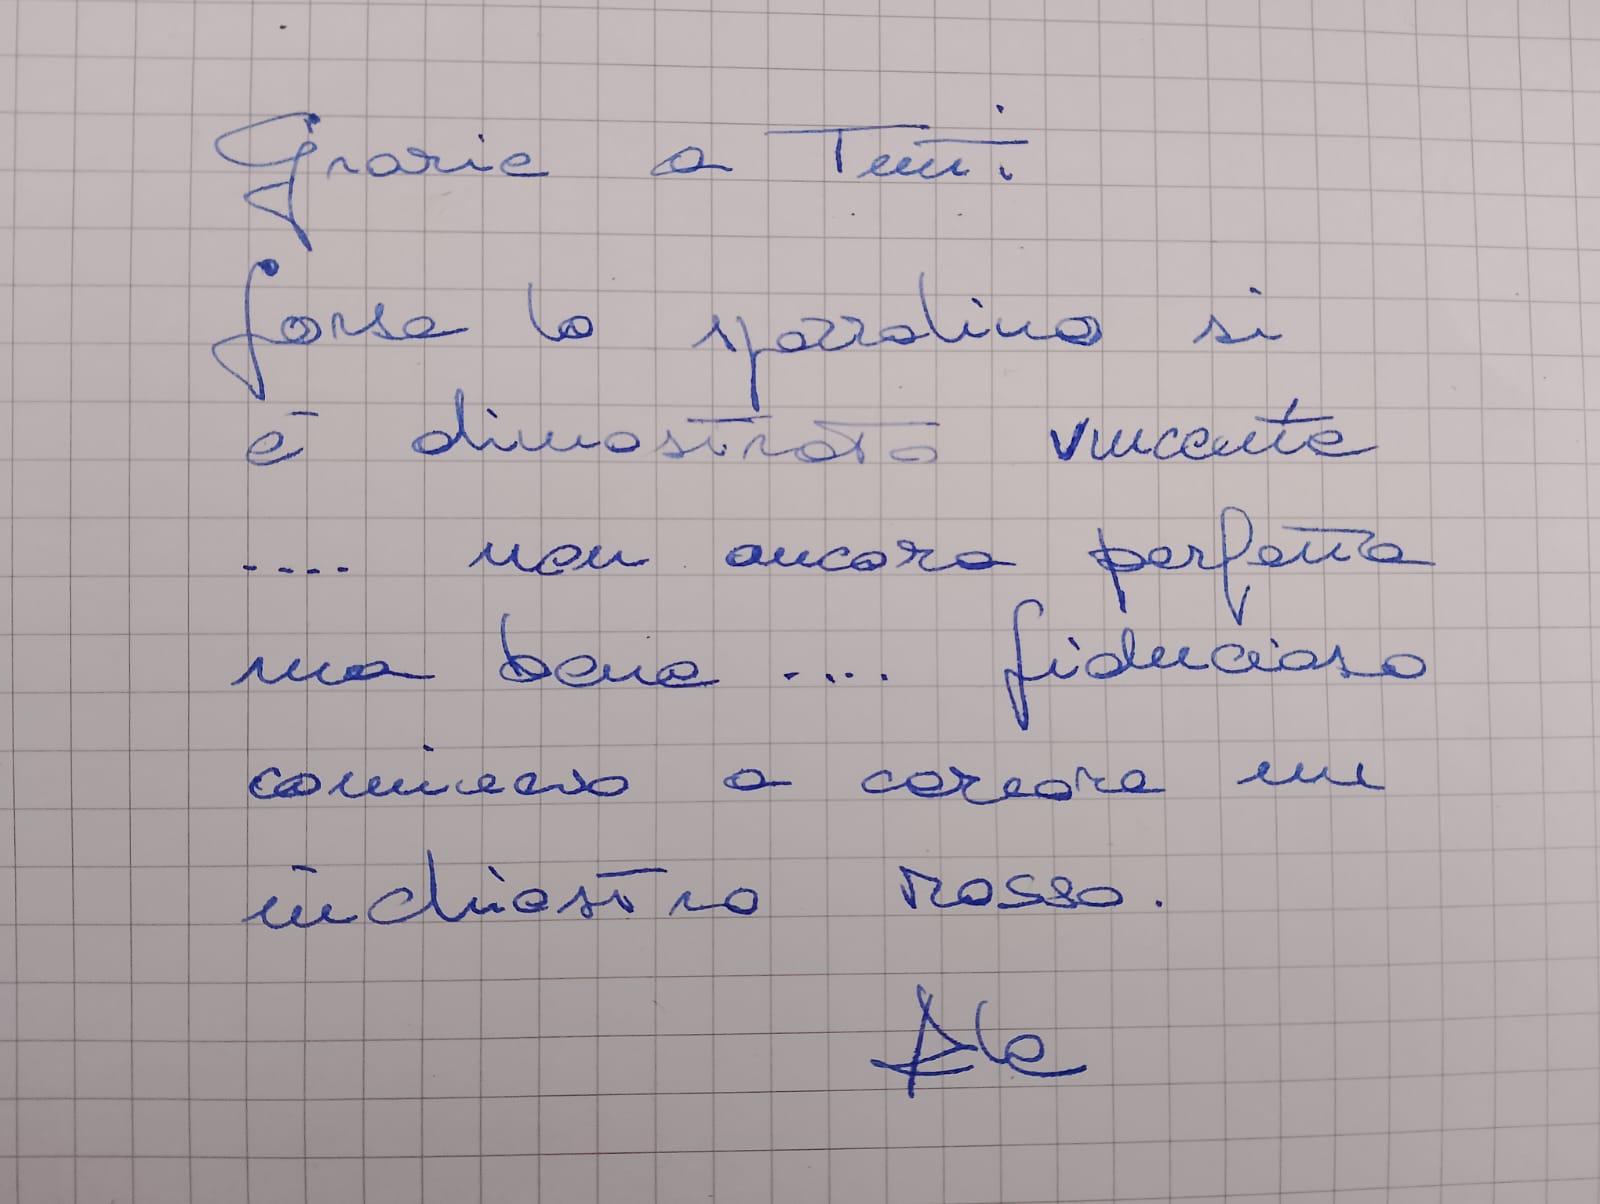 Grazie a Tutti
forse lo spazzolino si
è dimostrato vincente
.... non ancora perfetta
ma bene .... fiducioso
comincio a cercare un
inchiostro rosso.
Ale